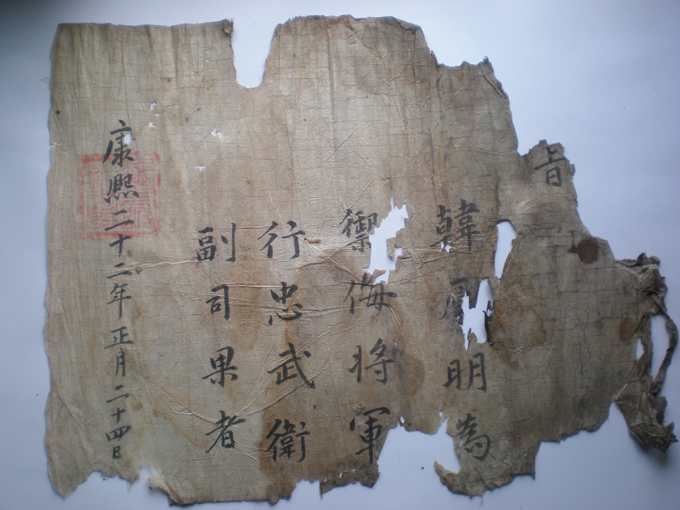 旨
韓明為
禦侮将軍
行忠武衛
副司果者
康熙二十二年正月二十四日